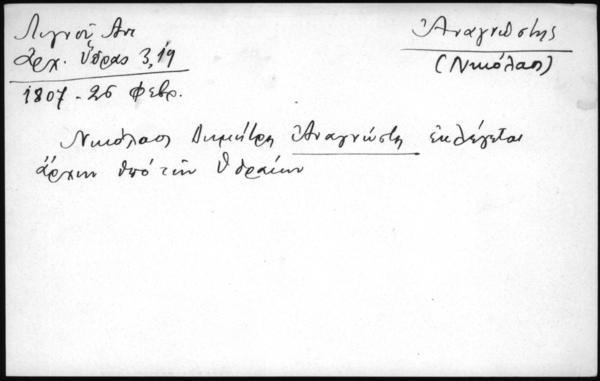 Λιγνοῦ Αντ
ἀρχ. Ὕδρας 3,19
1807 - 26 Φεβρ.
Ἀναγνώστης
(Νικόλαος)
Νικόλαος Δημήτρη Ἀναγνώστη ἐκλέγεται
ἄρχων ὑπό τῶν Ὑδραίων